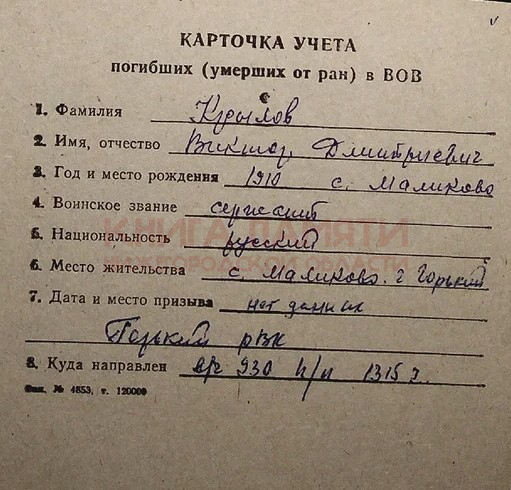 КАРТОЧКА УЧЕТА
погибших (умерших от ран) в ВОВ
1. Фамилия Курылов
2. Имя, отчество Виктор Дмитриевич
3. Год и место рождения 1910 с. Маликово
4. Воинское звание сержант
КНИГА ПАМЯТИ
5. Национальность русский
НИЖЕГОРОДСКОЙ ОБЛАСТИ
6. Место жительства с. Маликово. г Горький
7. Дата и место призыва нет данных
Горький рвк
8. Куда направлен в/ч 930 п/п
Зак. № 4853, т. 120000